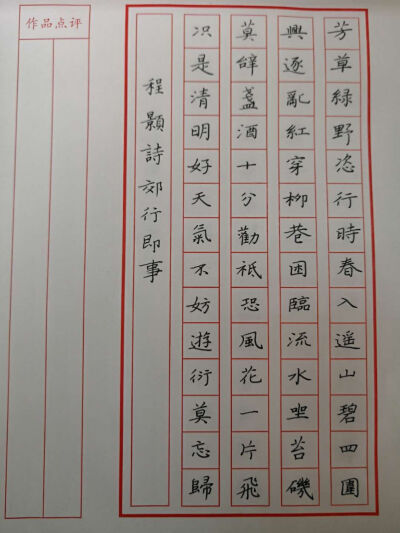 芳草緑野恣行時春入遥山碧四圍
興逐亂紅穿柳巷困臨流水坐苔磯
莫辭盞酒十分勸祇恐風花一片飛
况是清明好天氣不妨遊衍莫忘歸
程顥詩郊行即事
作品点评